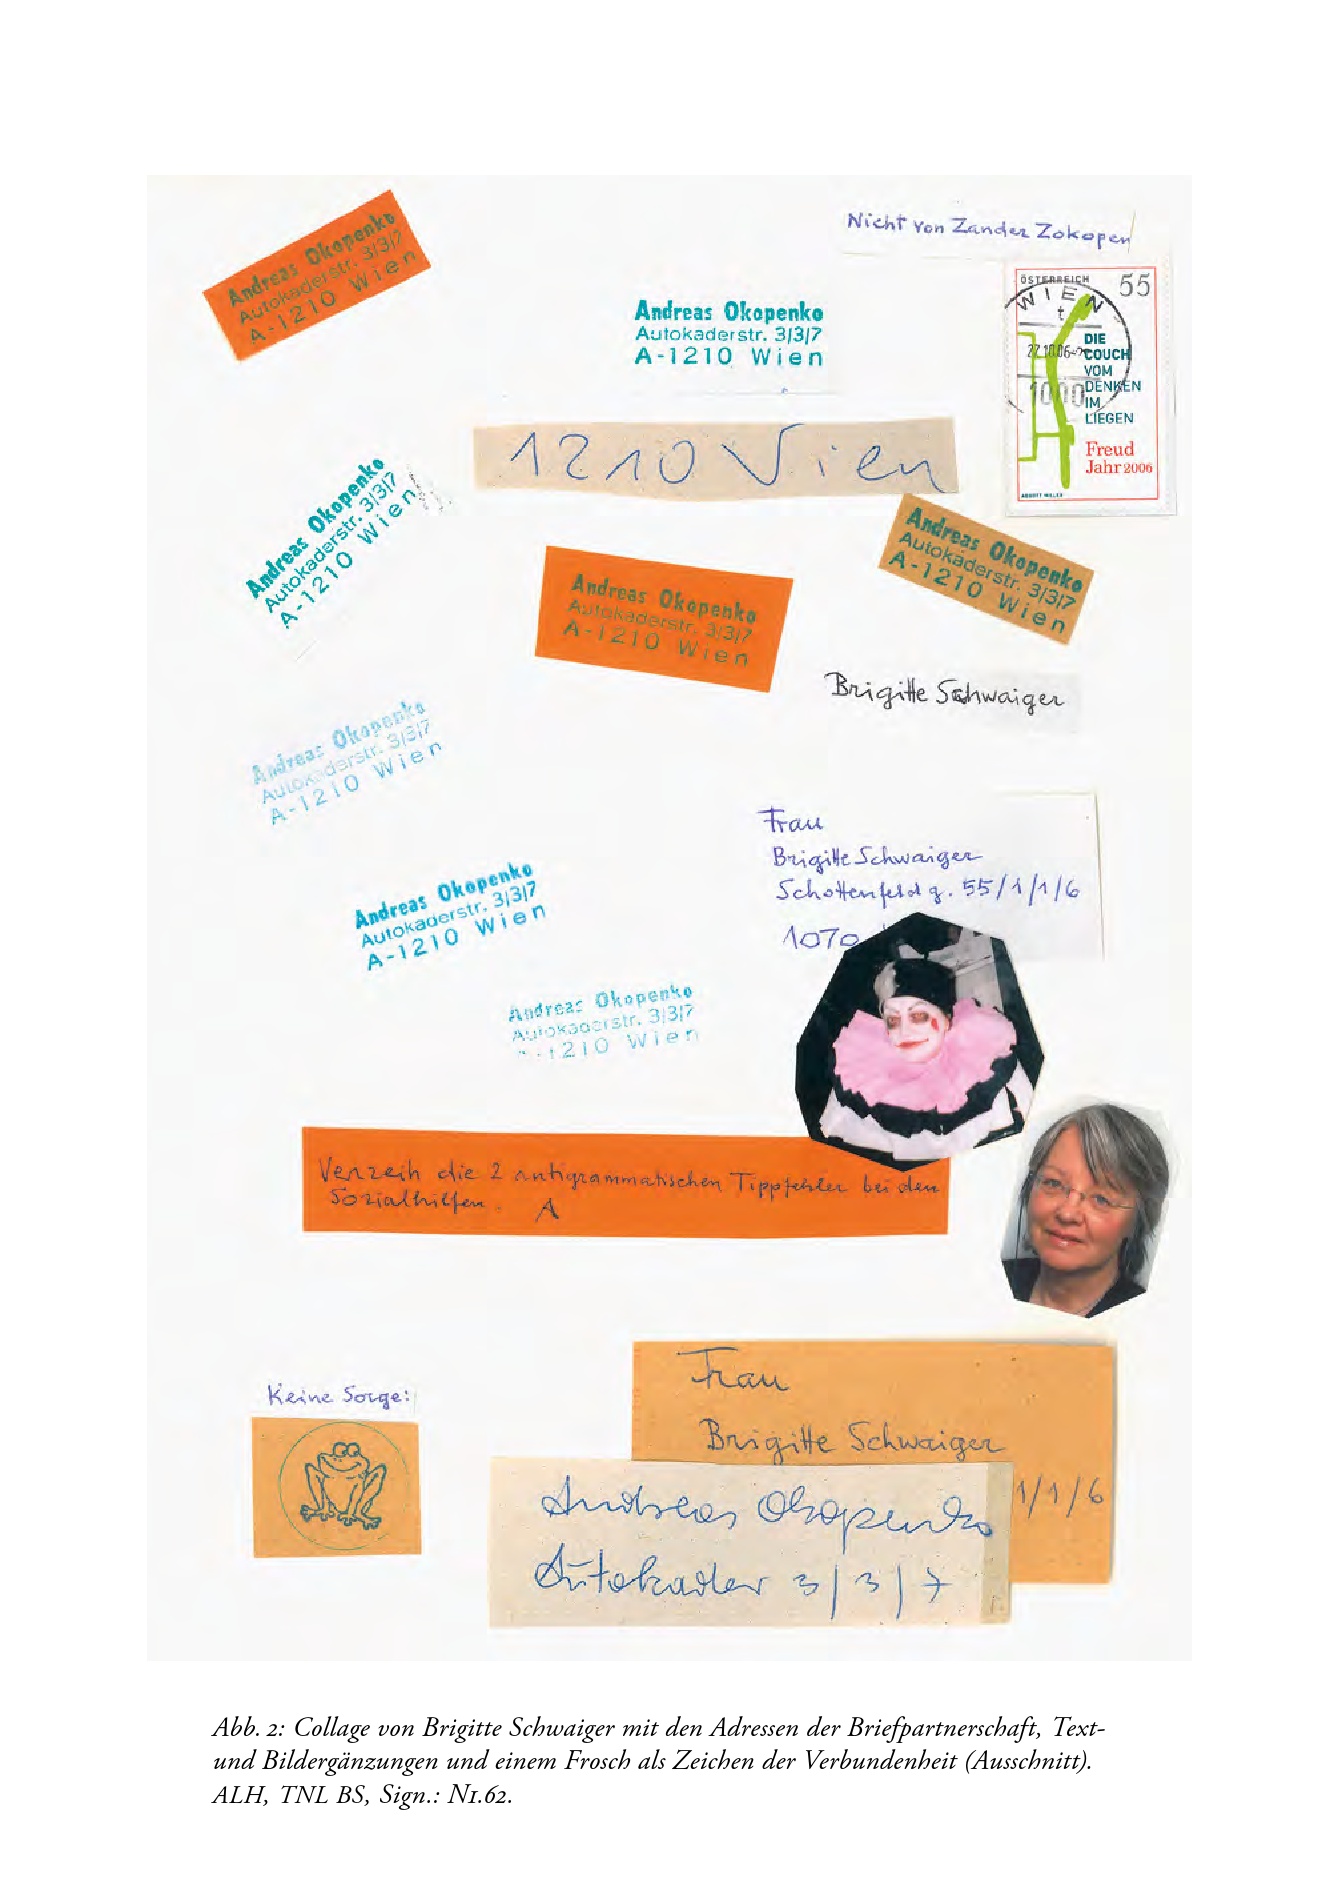 Andreas Okopenko
Autokaderstr. 3/3/7
A-1210 Wien
Nicht von Zander Zokopen
Andreas Okopenko
Autokaderstr. 3/3/7
A-1210 Wien
ÖSTERREICH 55
WIEN
t
27.10.06
1000
DIE
COUCH
VOM
DENKEN
IM
LIEGEN
Freud
Jahr 2006
1210 Wien
Andreas Okopenko
Autokaderstr. 3/3/7
A-1210 Wien
Andreas Okopenko
Autokaderstr. 3/3/7
A-1210 Wien
Andreas Okopenko
Autokaderstr. 3/3/7
A-1210 Wien
Brigitte Schwaiger
Andreas Okopenko
Autokaderstr. 3/3/7
A-1210 Wien
Frau
Brigitte Schwaiger
Schottenfeldg. 55/1/1/6
1070
Andreas Okopenko
Autokaderstr. 3/3/7
A-1210 Wien
Andreas Okopenko
Autokaderstr. 3/3/7
1210 Wien
Verzeih die 2 antigrammatischen Tippfehler bei den
Sozialhilfen. A
Keine Sorge:
Frau
Brigitte Schwaiger
1/1/6
Andreas Okopenko
Autokader 3/3/7
Abb. 2: Collage von Brigitte Schwaiger mit den Adressen der Briefpartnerschaft, Text-
und Bildergänzungen und einem Frosch als Zeichen der Verbundenheit (Ausschnitt).
ALH, TNL BS, Sign.: N1.62.